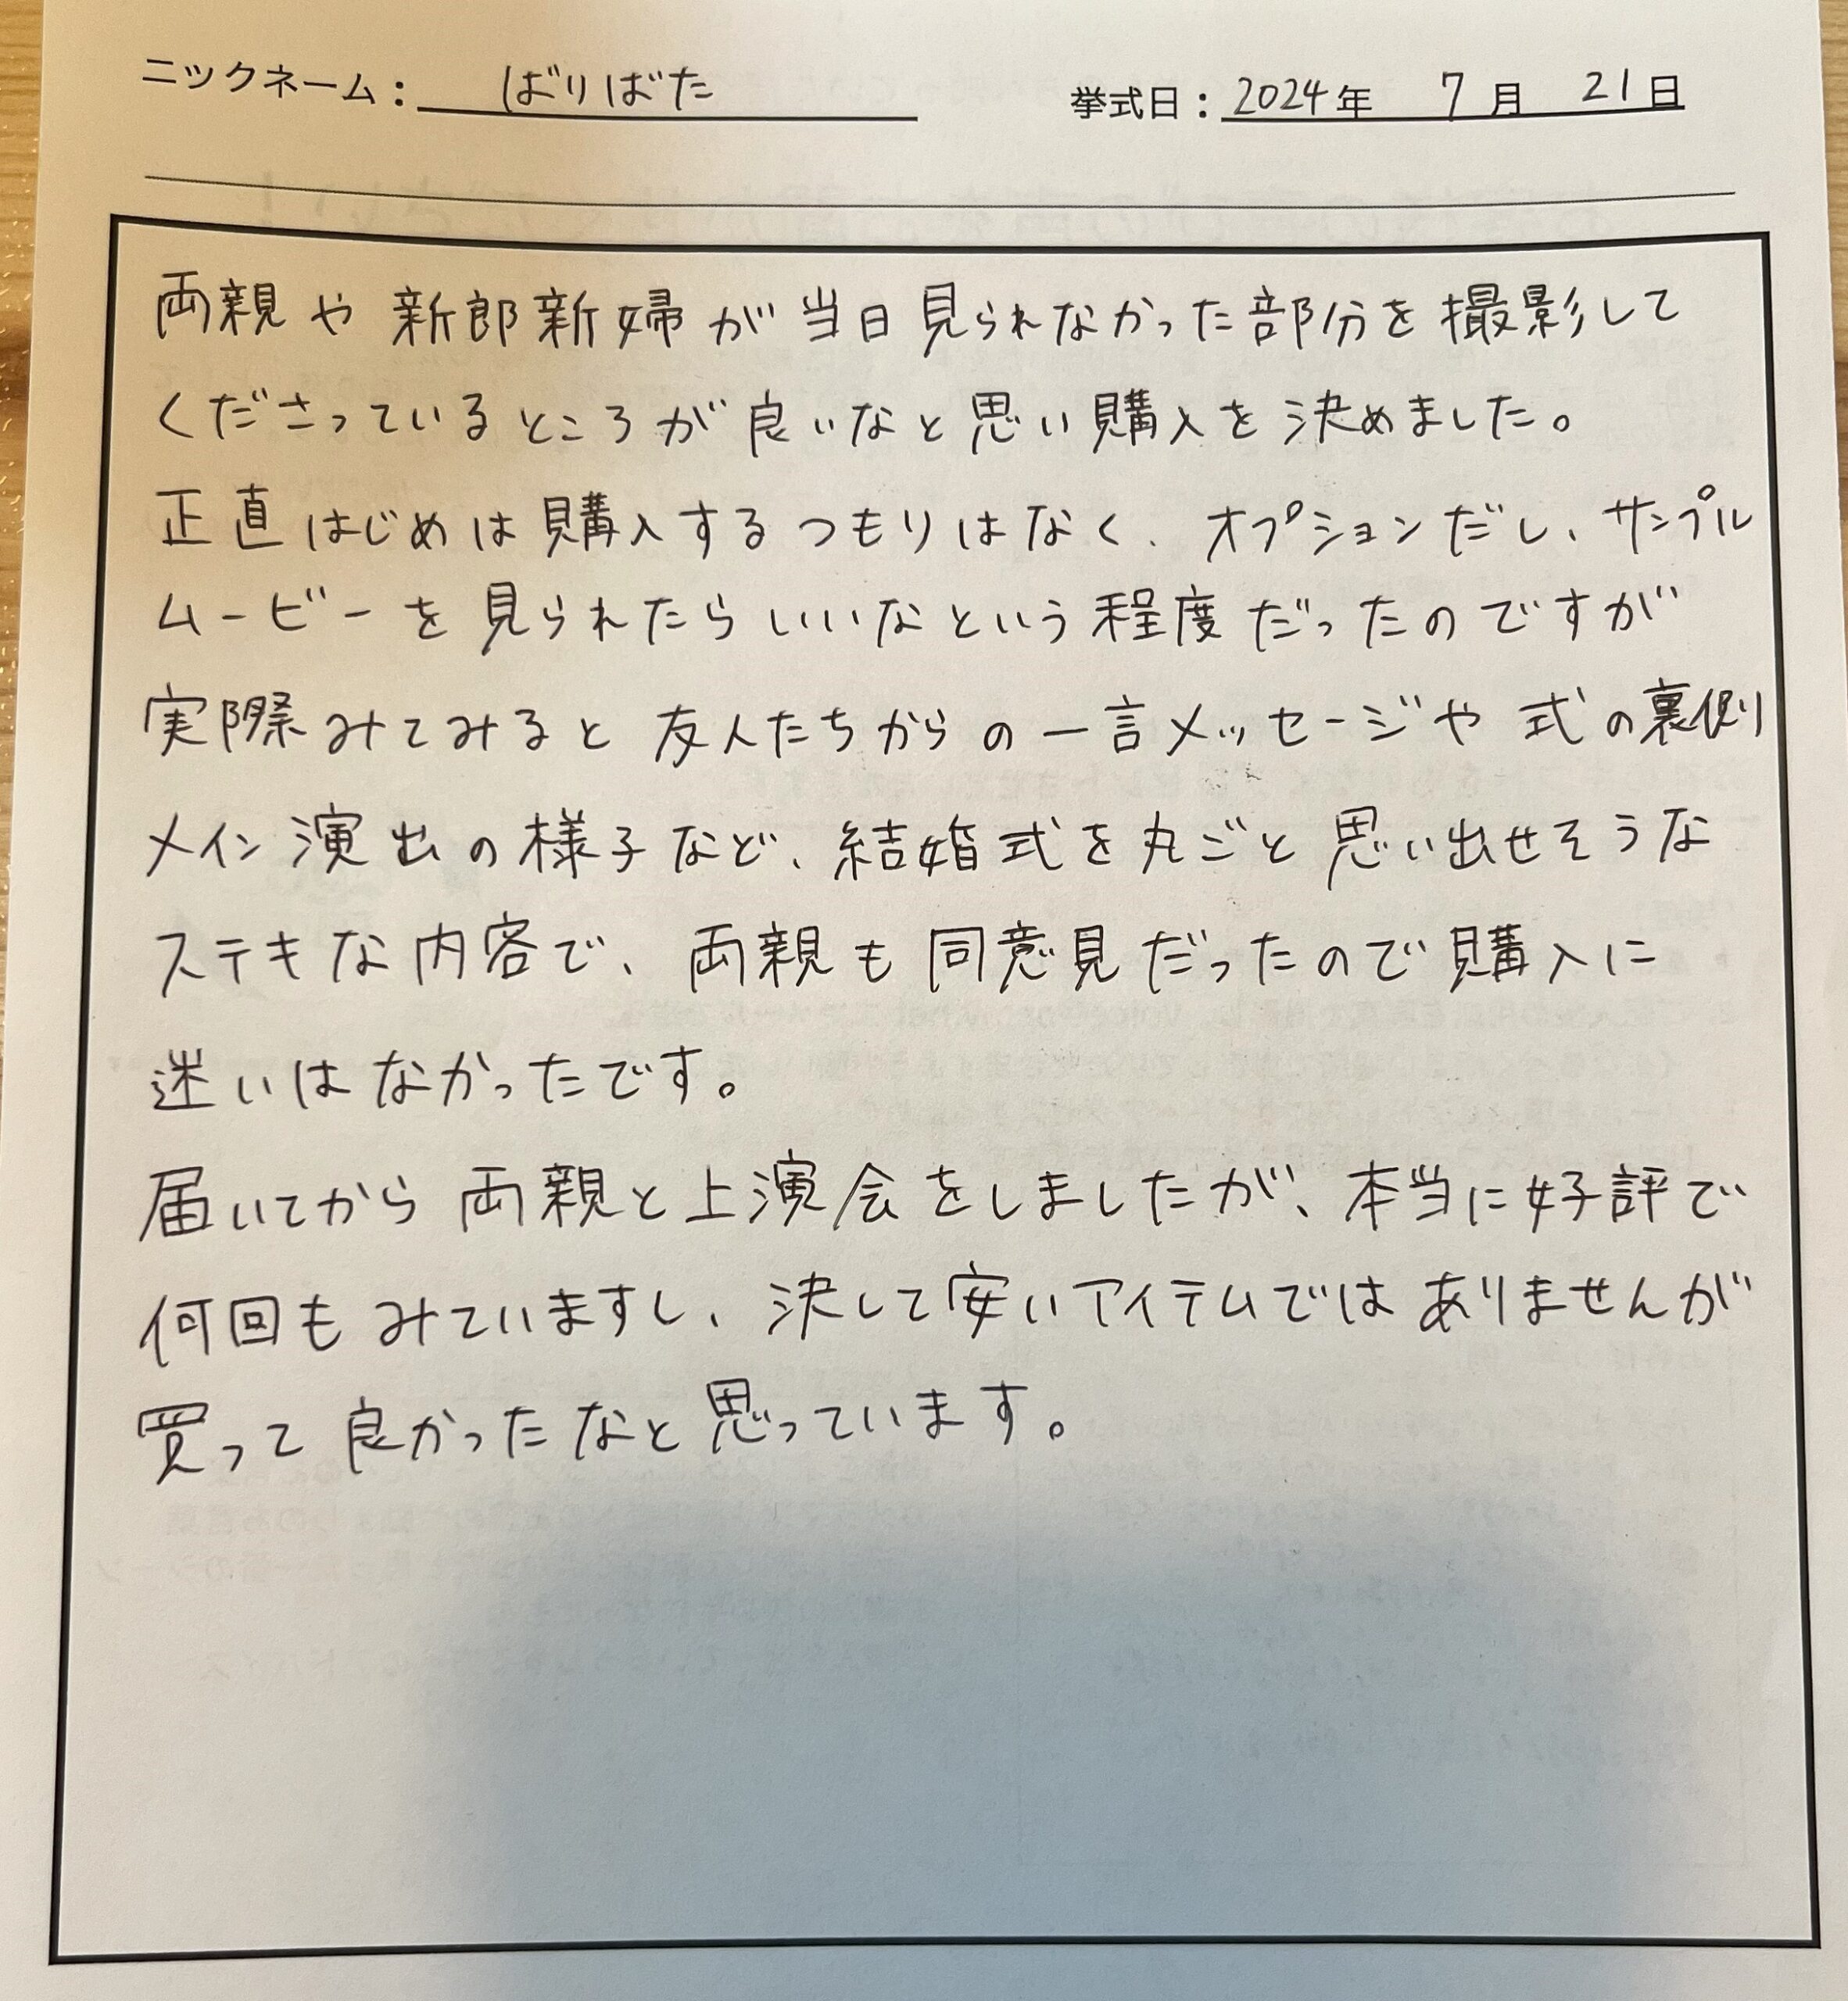 ニックネーム： ばりばた 挙式日：2024年 7月 21日
両親や新郎新婦が当日見られなかった部分を撮影して
くださっているところが良いなと思い購入を決めました。
正直はじめは購入するつもりはなく、オプションだし、サンプル
ムービーを見られたらいいなという程度だったのですが
実際みてみると友人たちからの一言メッセージや式の裏側
メイン演出の様子など、結婚式を丸ごと思い出せそうな
ステキな内容で、両親も同意見だったので購入に
迷いはなかったです。
届いてから両親と上演会をしましたが、本当に好評で
何回もみていますし、決して安いアイテムではありませんが
買って良かったなと思っています。